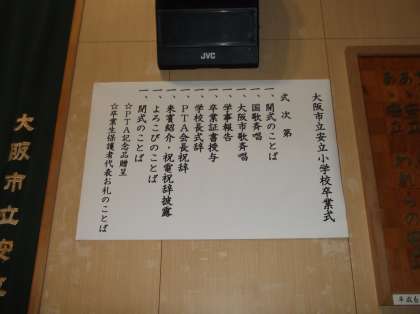 JVC
大阪市立安立小学校卒業式
式次第
一、開式のことば
一、国歌斉唱
一、大阪市歌斉唱
一、学事報告
一、卒業証書授与
一、学校長式辞
一、PTA会長祝辞
一、来賓紹介・祝電祝辞披露
一、よろこびのことば
一、閉式のことば
☆PTA記念品贈呈
☆卒業生保護者代表お礼のことば
大阪市立安立